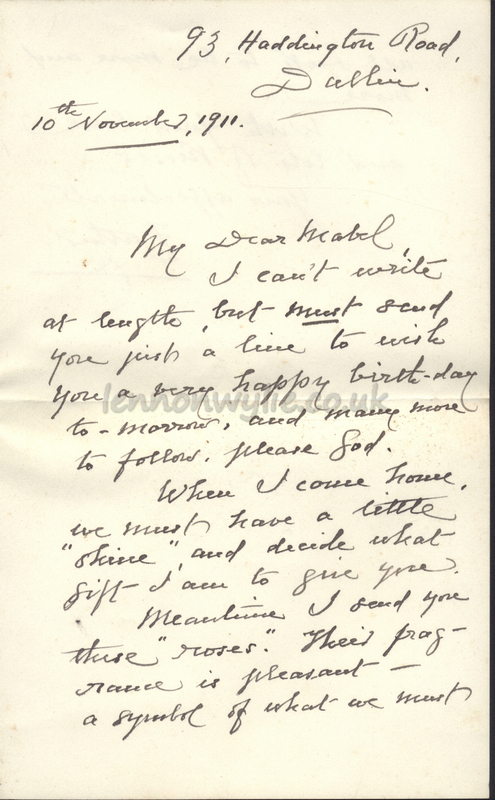 93, Haddington Road,
Dublin.
10th November, 1911.
My Dear Mabel,
I can't write
at length, but must send
you just a line to wish
you a very happy birth-day
to-morrow, and many more
to follow, please God.
When I come home,
we must have a little
"shine", and decide what
gift I am to give you.
Meantime I send you
these "roses". Their frag-
rance is pleasant —
a symbol of what we must
lennonwylie.co.uk